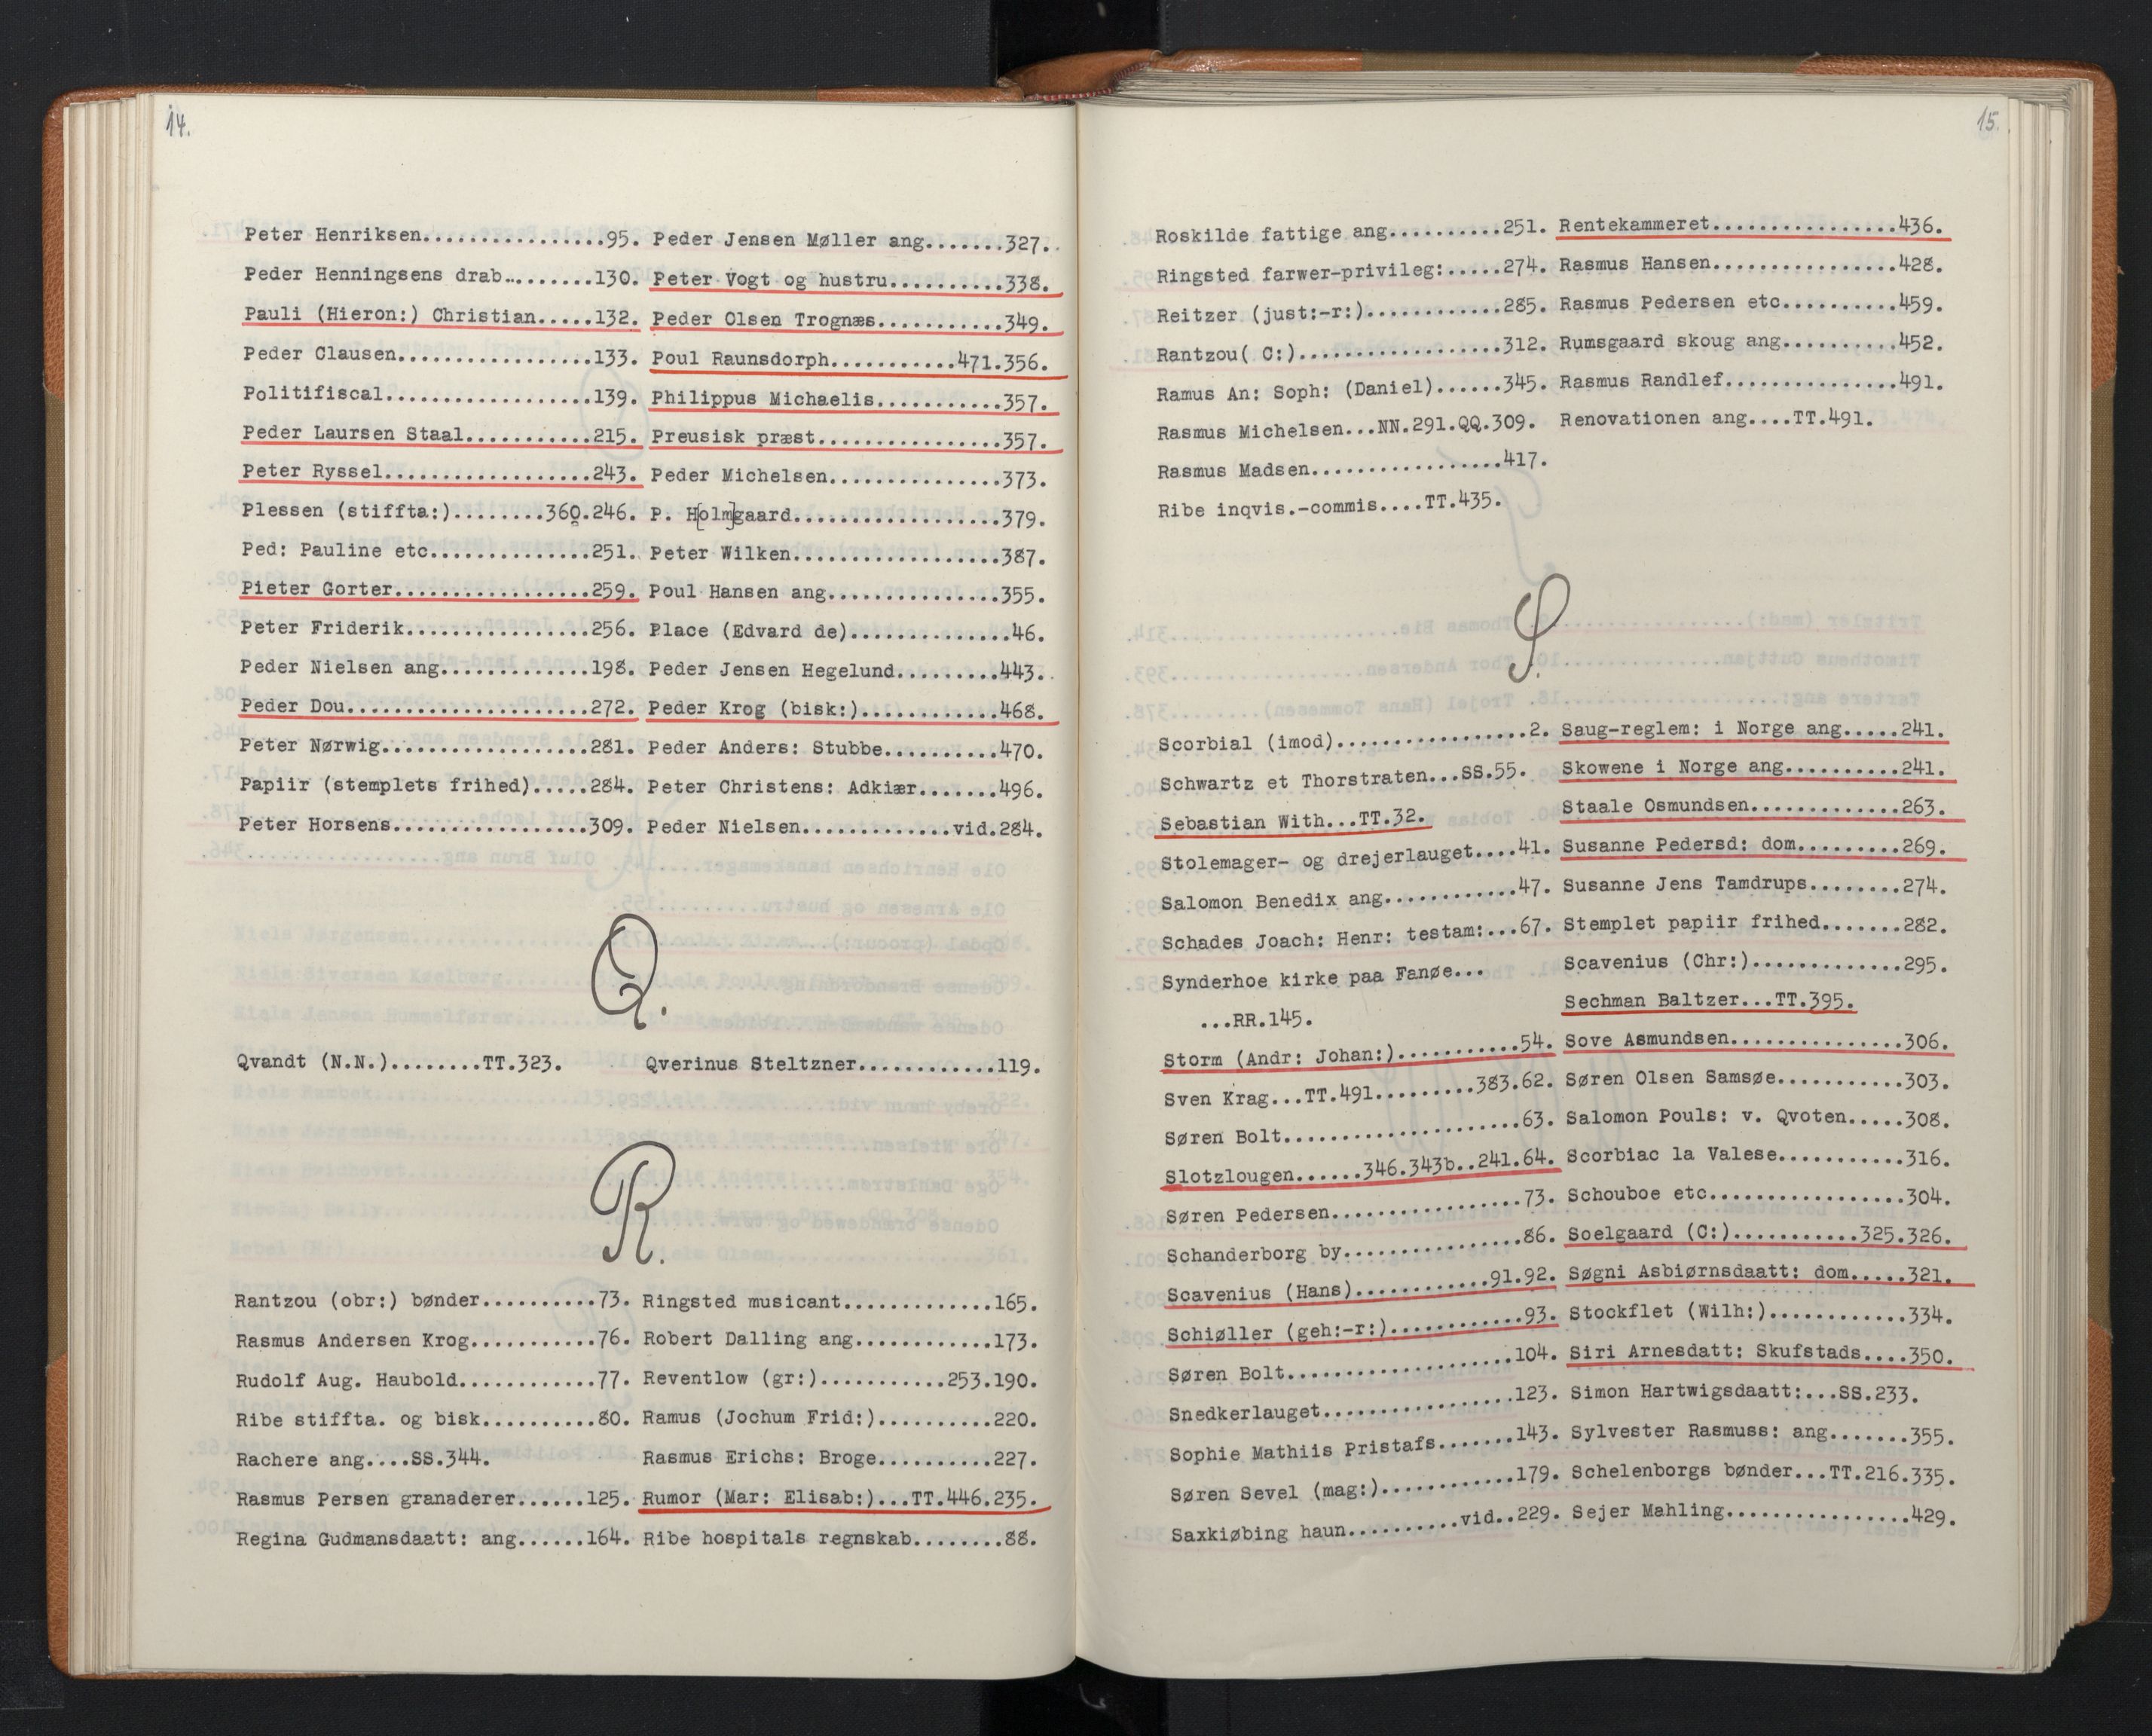 14.
Peter Henriksen................95.
Peder Henningsens drab.........130.
Pauli (Hieron:) Christian.....132.
Peder Clausen.................133.
Politifiscal..................139.
Peder Laursen Staal...........215.
Peter Ryssel..................243.
Plessen (stiffta:)........360.246.
Ped: Pauline etc..............251.
Pieter Gorter.................259.
Peter Friderik................256.
Peder Nielsen ang.............198.
Peder Dou.....................272.
Peter Nørwig..................281.
Papiir (stemplets frihed).....284.
Peter Horsens.................309.
Peder Jensen Møller ang.......327.
Peter Vogt og hustru..........338.
Peder Olsen Trognæs...........349.
Poul Raunsdorph...........471.356.
Philippus Michaelis...........357.
Preusisk præst................357.
Peder Michelsen...............373.
P. H[olm]gaard..................379.
Peter Wilken..................387.
Poul Hansen ang...............355.
Place (Edvard de)..............46.
Peder Jensen Hegelund.........443.
Peder Krog (bisk:)............468.
Peder Anders: Stubbe..........470.
Peter Christens: Adkiær.......496.
Peder Nielsen.............vid.284.
Q.
Qvandt (N.N.)........TT.323.
Qverinus Steltzner............119.
R.
Rantzou (obr:) bønder..........73.
Rasmus Andersen Krog...........76.
Rudolf Aug. Haubold............77.
Ribe stiffta. og bisk..........80.
Rachere ang....SS.344.
Rasmus Persen granaderer......125.
Regina Gudmansdaatt: ang......164.
Ringsted musicant.............165.
Robert Dalling ang............173.
Reventlow (gr:)...........253.190.
Ramus (Jochum Frid:)..........220.
Rasmus Erichs: Broge..........227.
Rumor (Mar: Elisab:)...TT.446.235.
Ribe hospitals regnskab........88.
15.
Roskilde fattige ang..........251.
Ringsted farwer-privileg:.....274.
Reitzer (just:-r:)............285.
Rantzou( C:)..................312.
Ramus An: Soph: (Daniel)......345.
Rasmus Michelsen...NN.291.QQ.309.
Rasmus Madsen.................417.
Ribe inqvis.-commis....TT.435.
Rentekammeret................436.
Rasmus Hansen................428.
Rasmus Pedersen etc..........459.
Rumsgaard skoug ang..........452.
Rasmus Randlef...............491.
Renovationen ang....TT.491.
S.
Scorbial (imod).................2.
Schwartz et Thorstraten...SS.55.
Sebastian With...TT.32.
Stolemager- og drejerlauget....41.
Salomon Benedix ang............47.
Schades Joach: Henr: testam:...67.
Synderhoe kirke paa Fanøe...
...RR.145.
Storm (Andr: Johan:)...........54.
Sven Krag...TT.491.........383.62.
Søren Bolt.....................63.
Slotzlougen......346.343b..241.64.
Søren Pedersen.................73.
Schanderborg by................86.
Scavenius (Hans)............91.92.
Schiøller (geh:-r:)............93.
Søren Bolt....................104.
Snedkerlauget.................123.
Sophie Mathiis Pristafs.......143.
Søren Sevel (mag:)............179.
Saxkiøbing haun..........vid..229.
Saug-reglem: i Norge ang.....241.
Skowene i Norge ang..........241.
Staale Osmundsen.............263.
Susanne Pedersd: dom.........269.
Susanne Jens Tamdrups........274.
Stemplet papiir frihed.......282.
Scavenius (Chr:).............295.
Sechman Baltzer...TT.395.
Sove Asmundsen...............306.
Søren Olsen Samsøe...........303.
Salomon Pouls: v. Qvoten.....308.
Scorbiac la Valese...........316.
Schouboe etc.................304.
Soelgaard (C:)...........325.326.
Søgni Asbiørnsdaatt: dom.....321.
Stockflet (Wilh:)............334.
Siri Arnesdatt: Skufstads....350.
Simon Hartwigsdaatt:...SS.233.
Sylvester Rasmuss: ang.......355.
Schelenborgs bønder...TT.216.335.
Sejer Mahling................429.